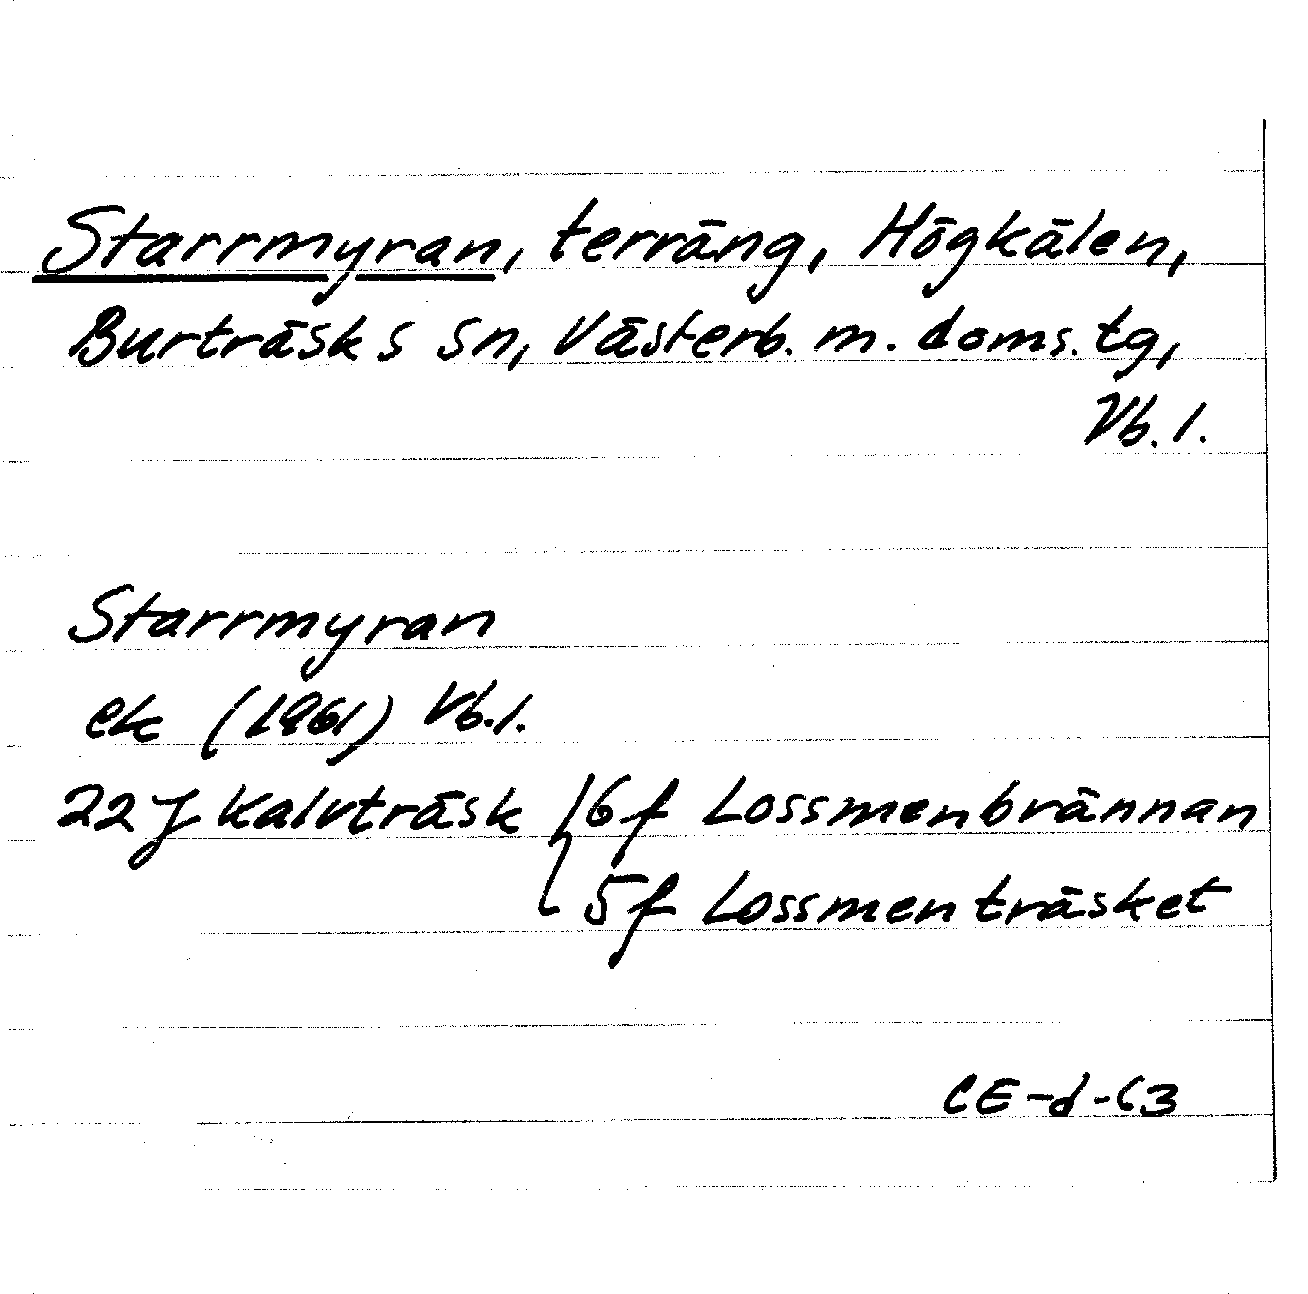 Starrmyran, terräng, Högkälen,
Burträsks sn, Västerb. m. doms. tg,
Vb. l.
Starrmyran
ek (1961) Vb. l.
22 J Kalvträsk 6 f Lossmenbrännan
5 f Lossmenträsket
CE-d-63